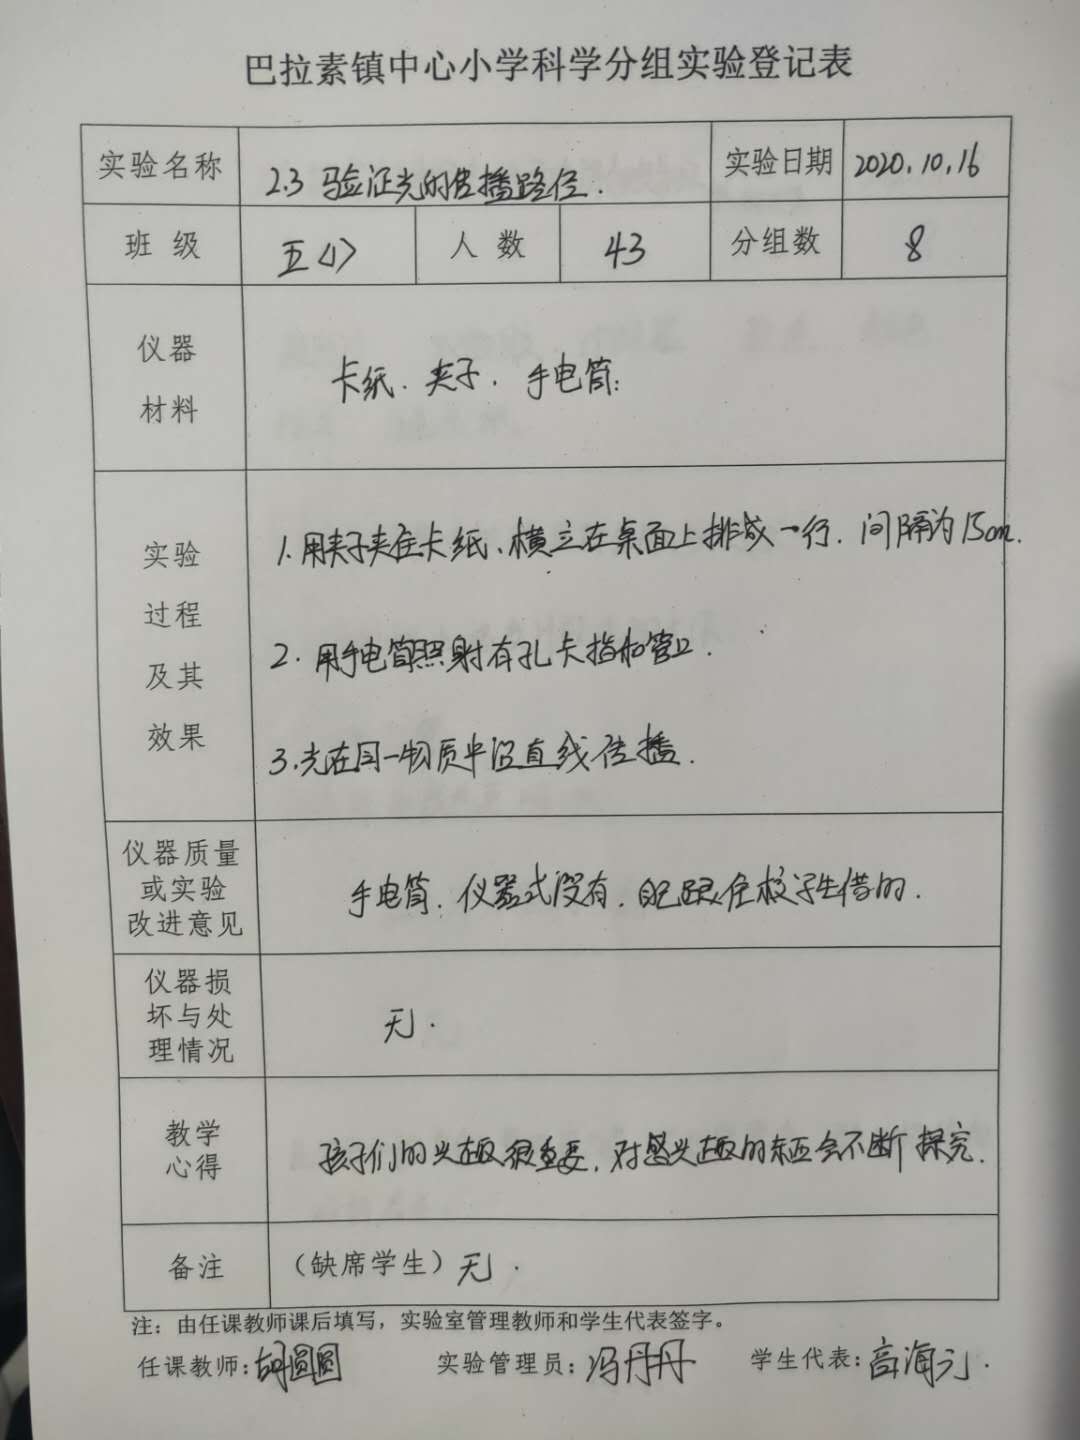 巴拉素镇中心小学科学分组实验登记表
实验名称 2.3 验证光的传播路径. 实验日期 2020.10.16
班级 五<1> 人数 43 分组数 8
仪器
材料
卡纙、夹子、手电筒;
实验
过程
及其
效果
1.用夹子夹住卡纸、横立在桌面上排成一行.间隔为15cm.
2.用手电筒照射有孔卡指和管口.
3.光在同一物质中沿直线传播.
仪器质量
或实验
改进意见
手电筒.仪器式没有.自己跟住校学生借的.
仪器损
坏与处
理情况
无.
教学
心得
孩子们的兴趣很重要,对感兴趣的东西会不断探究.
备注 (缺席学生)无.
注:由任课教师课后填写,实验室管理教师和学生代表签字。
任课教师:胡圆圆 实验管理员:冯丹丹 学生代表:高海